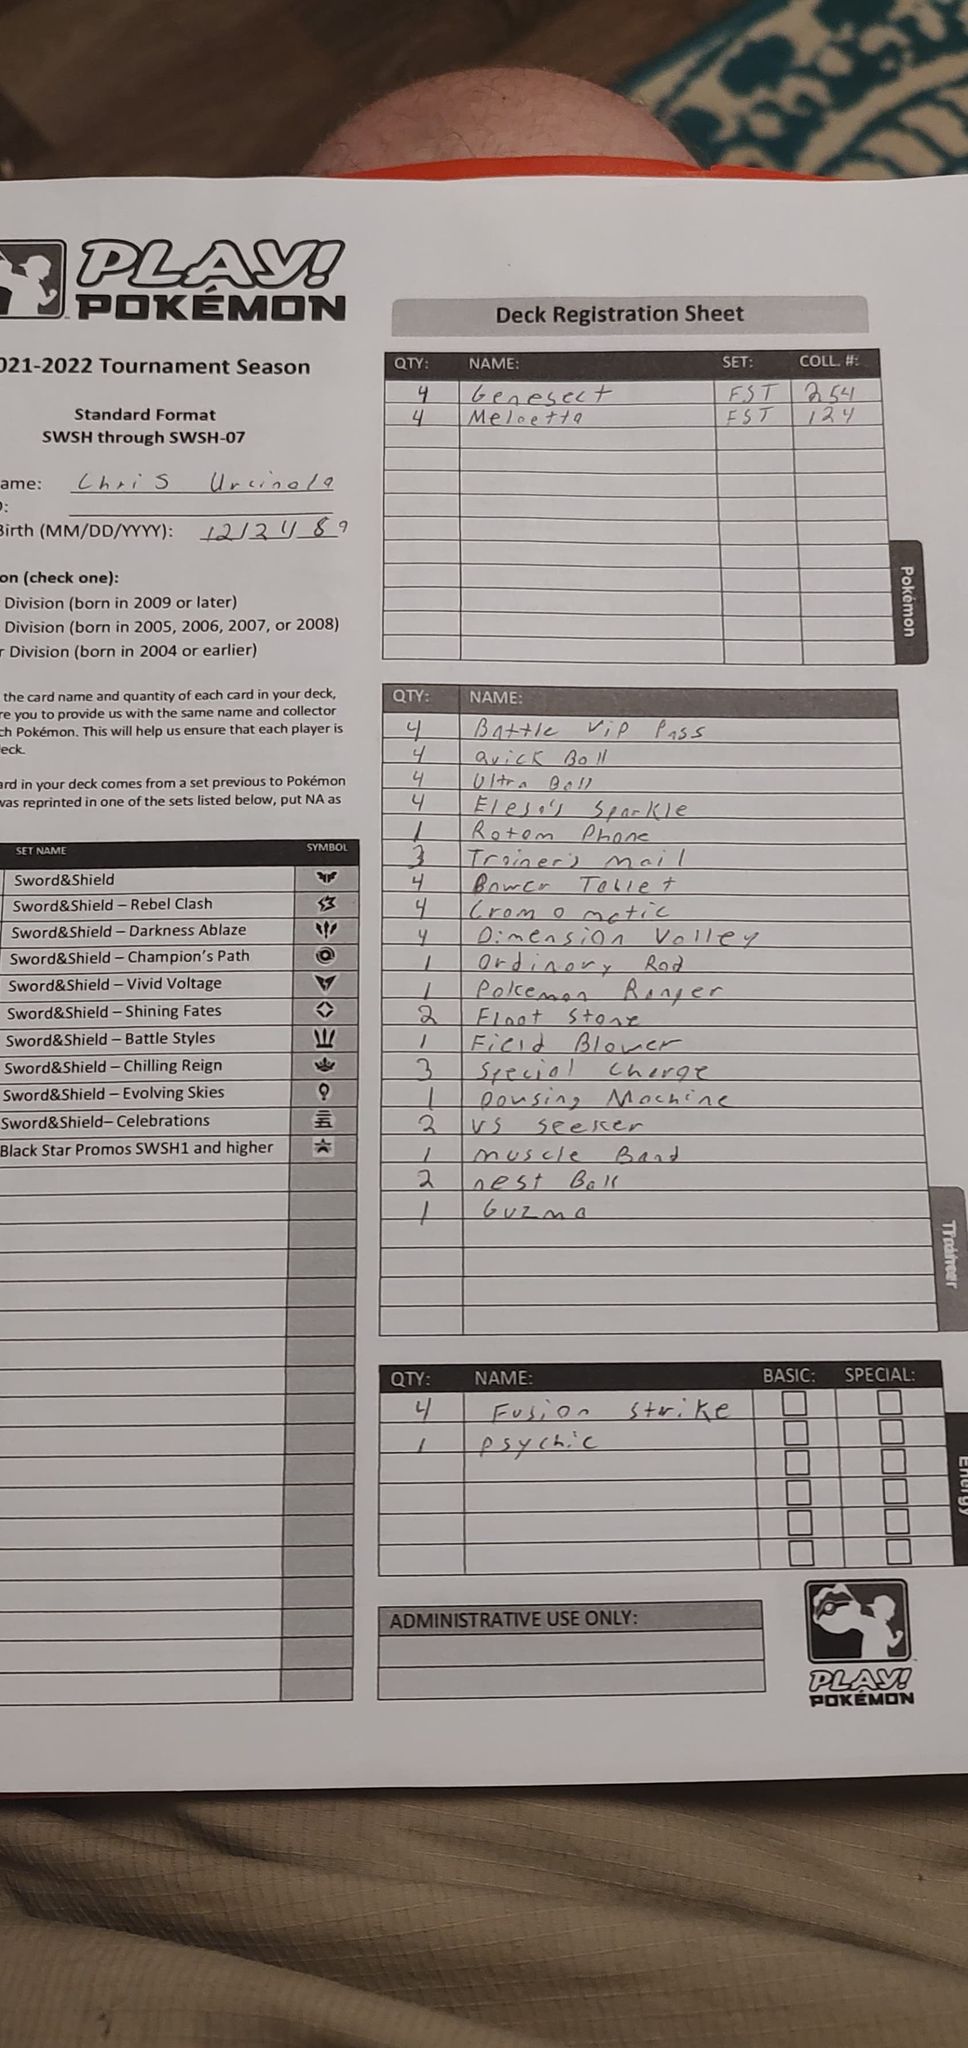 PLAY!
POKÉMON
021-2022 Tournament Season
Standard Format
SWSH through SWSH-07
ame: Chris Urcinola
D:
Birth (MM/DD/YYYY): 12/24/89
on (check one):
Division (born in 2009 or later)
Division (born in 2005, 2006, 2007, or 2008)
r Division (born in 2004 or earlier)
the card name and quantity of each card in your deck,
re you to provide us with the same name and collector
ch Pokémon. This will help us ensure that each player is
eck.
ard in your deck comes from a set previous to Pokémon
was reprinted in one of the sets listed below, put NA as
SET NAME SYMBOL
Sword&Shield
Sword&Shield – Rebel Clash
Sword&Shield – Darkness Ablaze
Sword&Shield – Champion's Path
Sword&Shield – Vivid Voltage
Sword&Shield – Shining Fates
Sword&Shield – Battle Styles
Sword&Shield – Chilling Reign
Sword&Shield – Evolving Skies
Sword&Shield– Celebrations
Black Star Promos SWSH1 and higher
Deck Registration Sheet
QTY: NAME: SET: COLL. #:
4 Genesect FST 254
4 Meloetta FST 124
Pokémon
QTY: NAME:
4 Battle Vip Pass
4 Quick Ball
4 Ultra Ball
4 Elesa's Sparkle
1 Rotom Phone
3 Trainer's Mail
4 Power Tablet
4 Crom o matic
4 Dimension Valley
1 Ordinary Rod
1 Pokemon Ranger
2 Float Stone
1 Field Blower
3 Special Charge
1 Dousing Machine
2 VS Seeker
1 Muscle Band
2 nest Ball
1 Guzma
Trainer
QTY: NAME: BASIC: SPECIAL:
4 Fusion Strike
1 psychic
Energy
ADMINISTRATIVE USE ONLY:
PLAY!
POKÉMON